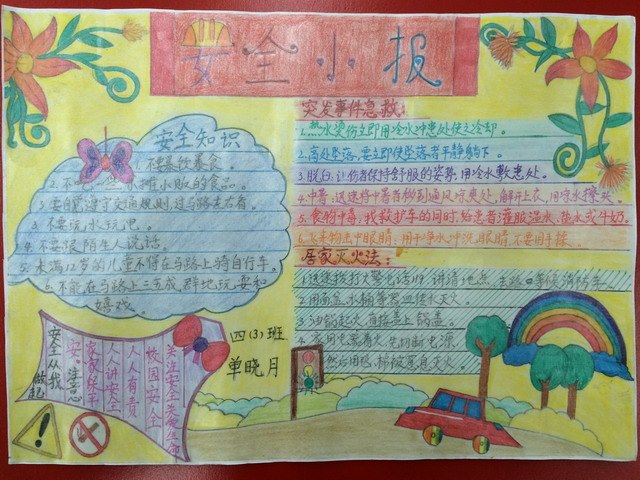 安全小报
安全知识
不要暴饮暴食。
2.不 摊小贩的食品。
3.要自觉遵守交通规则,过马路走右看。
3.不要玩火玩电。
4.不要跟陌生人说话。
5.未满12岁的儿童不得在马路上骑自行车。
6.不能在马路上三五成群地玩耍和
嬉戏。
突发事件急救:
1.热水烫伤立即用冷水冲患处使之冷却。
2.高处坠落,要立即使坠落者平静躺下。
3.脱臼:让伤者保持舒服的姿势,用冷水敷患处。
4.中暑:迅速将中暑者移到通风凉爽处,解开上衣,用凉水擦
5.食物中毒:我救护车的同时,给患者灌服温水、盐水或牛奶。
6.飞来物击中眼睛:用干净水冲洗眼睛,不要用手揉。
居家灭火法:
1.迅速拨打火警电话119,讲清地点,去路口等候消防车。
2.用面盆、水桶等器皿接水灭火。
3.油锅起火,直接盖上锅盖。
用电器着火,先切断电源
然后用毯、棉被窒息灭火
四(3)班
单晓月
关注安全关爱生命
校园安全
人人有责
人人讲安全
家家保平
安。注意
安全从我
做起